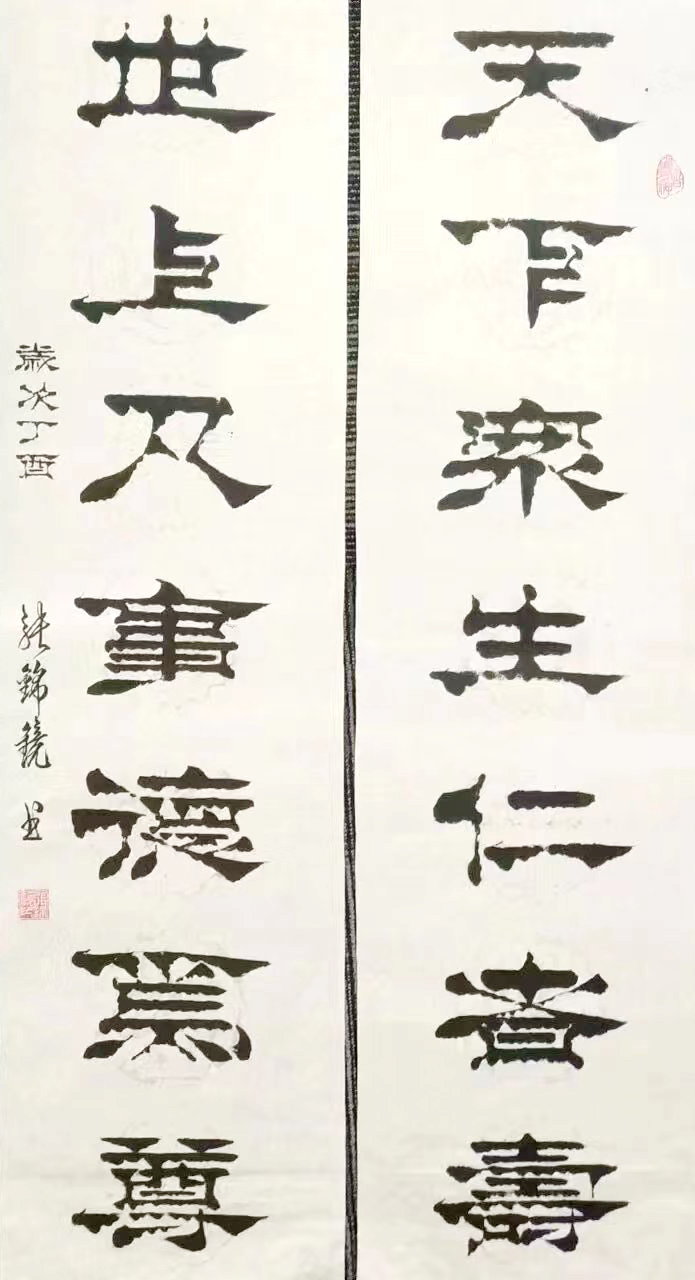 天下衆生仁者壽
世上凡事德為尊
歲次丁酉
張錦鏡書